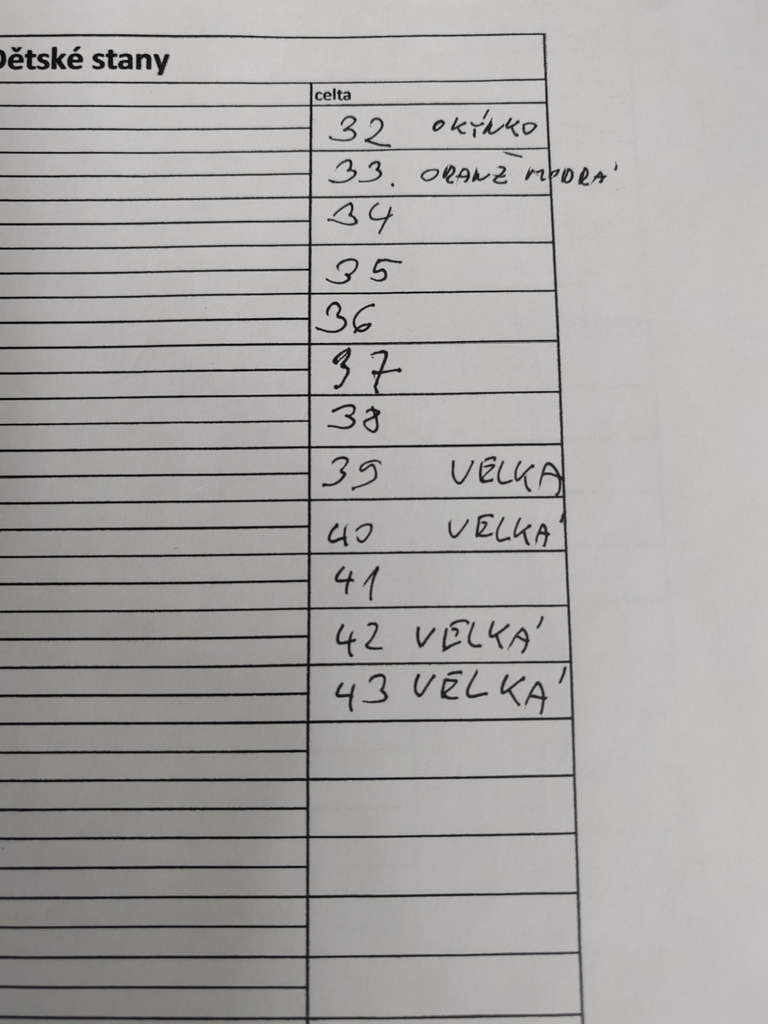 Dětské stany
celta
32 OKÝNKO
33. ORANŽ MODRÁ
34
35
36
37
38
39 VELKÁ
40 VELKÁ
41
42 VELKÁ
43 VELKÁ